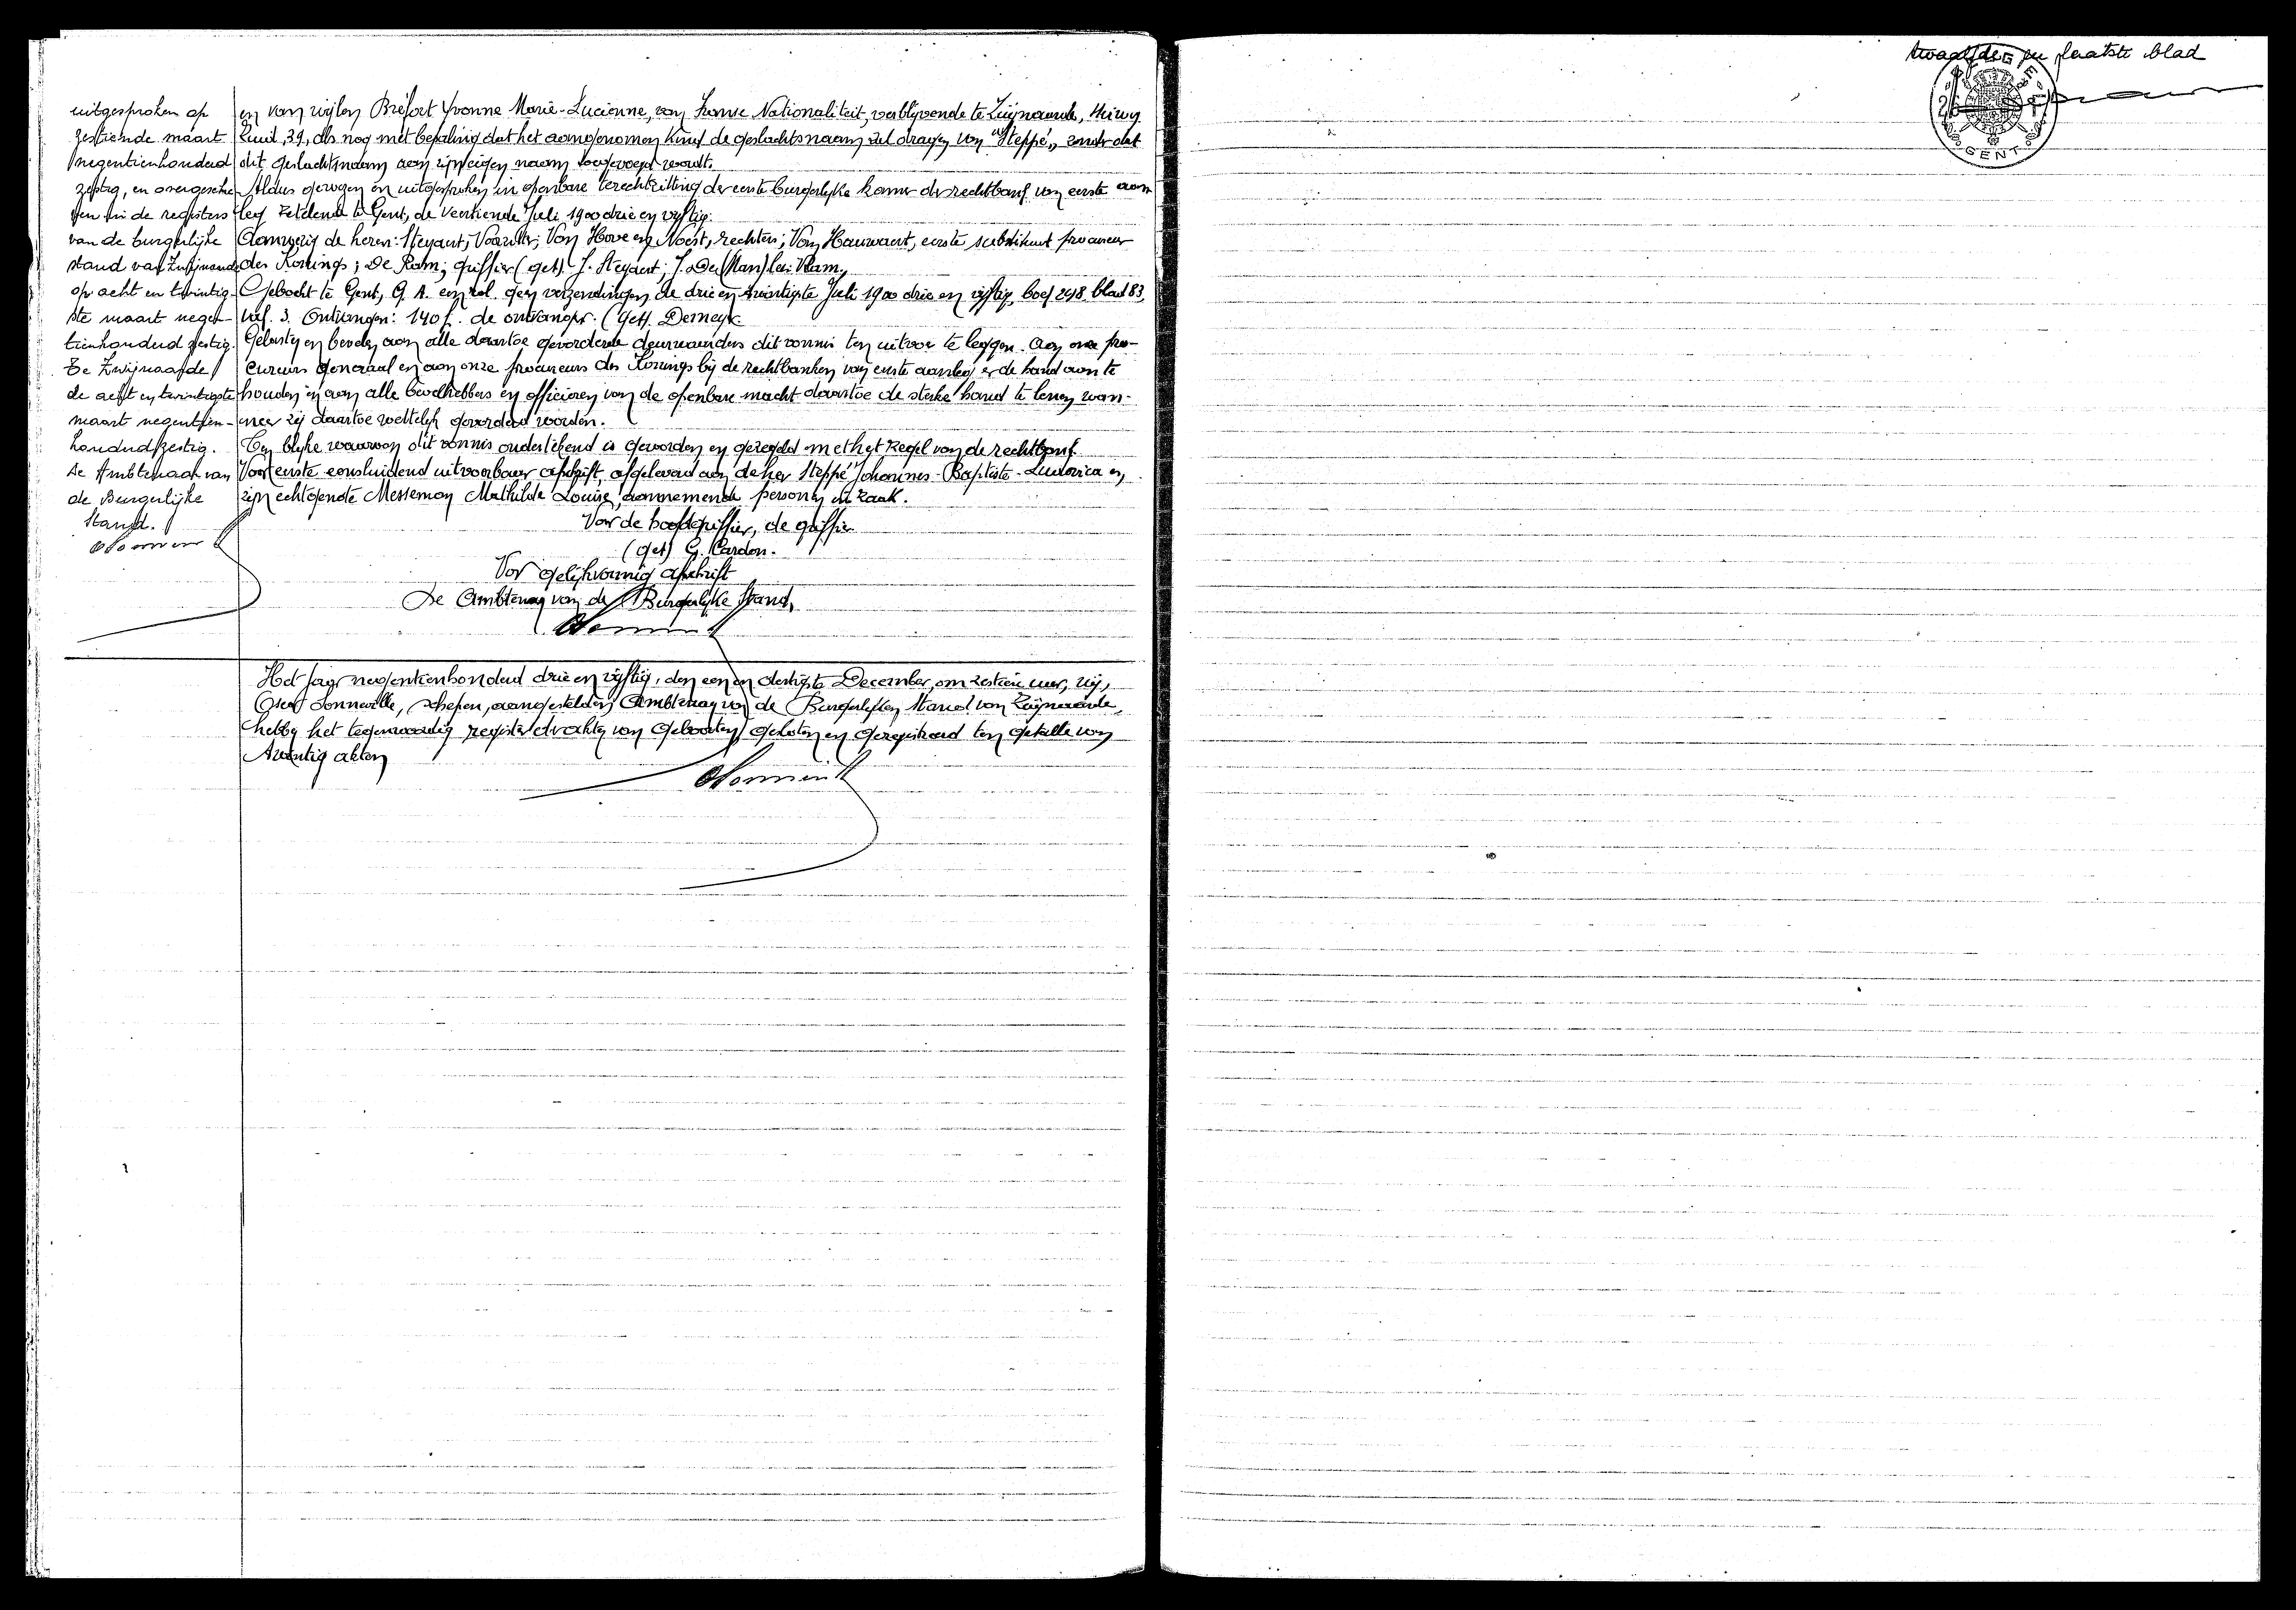 uitgesproken op
zestiende maart
negentienhonderd
zestig, en overgeschre-
ven in de registers
van de burgerlijke
stand van Zwijnaarde
op acht en twintig-
ste maart negen-
tienhonderd zestig.
Te Zwijnaarde
de acht en twintigste
maart negentien-
honderd zestig.
De Ambtenaar van
de Burgerlijke
Stand.
en van wijlen Bréfort Yvonne Marie-Lucienne, van Franse Nationaliteit, verblijvende te Zwijnaarde, Heirweg
Zuid, 39, als nog met bepaling dat het aangenomen Kind de geslachtsnaam zal dragen van "Steppé", zonder dat
dit geslachtsnaam aan zijn eigen naam toegevoegd wordt.
Aldus gewezen en uitgesproken in openbare terechtzitting der eerste burgerlijke kamer der rechtbank van eerste aan
leg zetelende te Gent, de veertiende Juli 1900 drie en vijftig.
Aanwezig de heren: Steyaert, Voorzitter; Van Hove en Noest, rechters; Van Hauwaert, eerste substituut procureur
des Konings; De Ram, griffier (get) J. Steyaert; J. De Ram,
Geboekt te Gent, G. A. en rol. geen verzendingen de drie en twintigste Juli 1900 drie en vijftig, boek 248 blad 83,
vak. 3. Ontvangen: 140 f. de ontvanger. (get). Demeyer.
Gelasten en bevelen aan alle daartoe gevorderde deurwaarders dit vonnis ten uitvoer te leggen. Aan onze pro-
cureurs generaal en aan onze procureurs des Konings bij de rechtbanken van eerste aanleg er de hand aan te
houden en aan alle bevelhebbers en officieren van de openbare macht daartoe de sterke hand te lenen wan-
neer zij daartoe wettelijk gevorderd worden.
Ten blijke waarvan dit vonnis ondertekend is geworden en gezegeld met het Zegel van de rechtbank.
Voor eerste eensluidend uitvoerbaar afschrift, afgeleverd aan de heer Steppé Johannes-Baptiste-Ludovica en
zijn echtgenote Messeman Mathilde Louise, aannemende personen in zaak.
Voor de hoofdgriffier, de griffier
(get) G. Cardon.
Voor gelijkvormig afschrift
De Ambtenaar van de Burgerlijke Stand,
Het jaar negentienhonderd drie en vijftig, den een en dertigste December, om zestien uur, wij,
Oscar Sonneville, schepen, aangestelden Ambtenaar van de Burgerlijken Stand van Zwijnaarde,
hebben het tegenwoordig register der akten van Geboorten, gesloten en geregistreerd ten getalle van
twintig akten
twaalfde en laatste blad
GENT